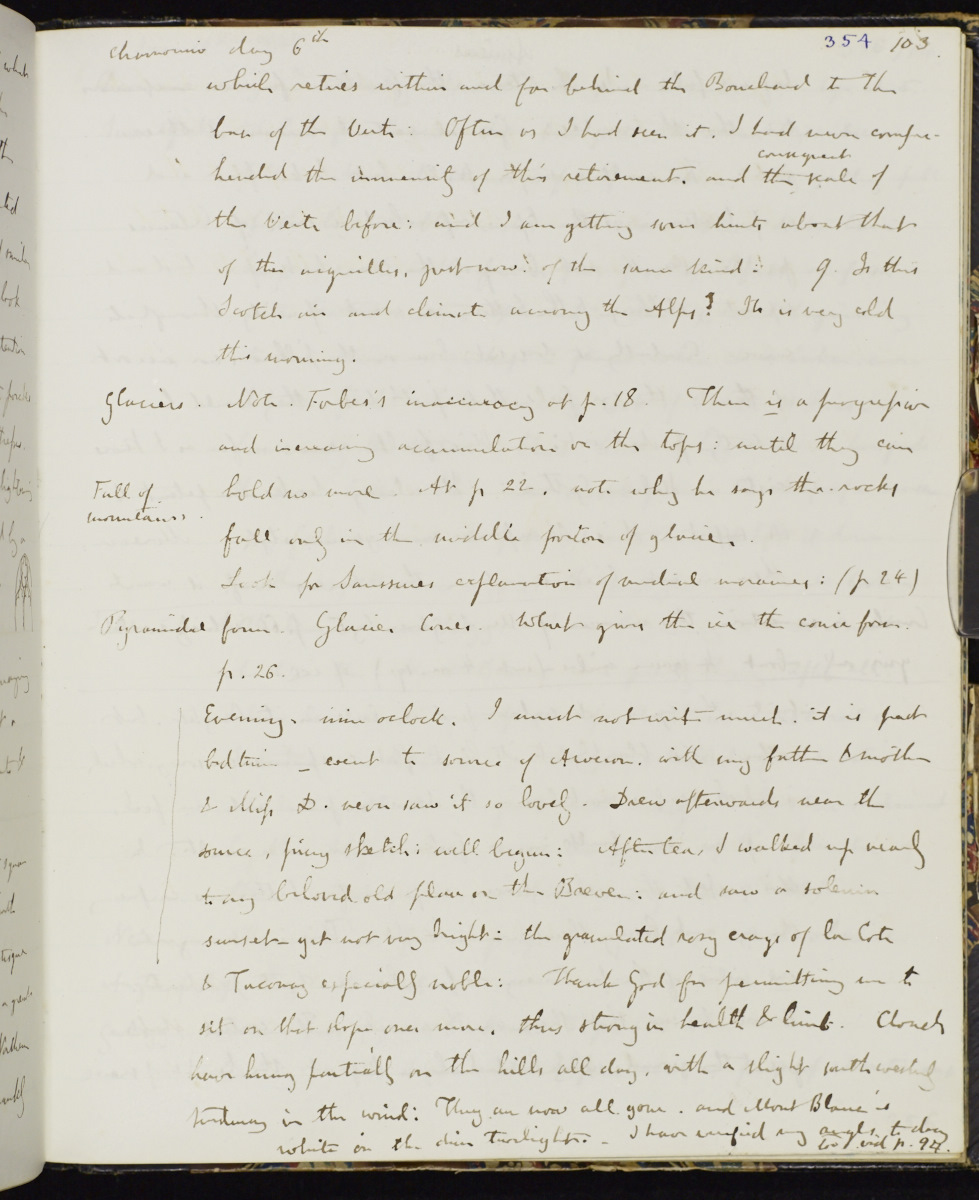 Chamonix day 6th 354 103
which retires within and far behind the Bouchard to the
base of the Verte: Often as I had seen it, I had never compre-
consequent
hended the immensity of this retirement. and the scale of
the Verte before: and I am getting some hints about that
of the aiguilles, just now: of the same kind: Q. Is this
Scotch air and climate among the Alps? It is very cold
this morning.
Glaciers. Note. Forbes's inaccuracy at p. 18. There is a progressive
and increasing accumulation on the tops: until they can
Fall of hold no more. At p 22. note why he says the rocks
mountains.
fall only in the middle portion of glacier.
Look for Saussures explanation of medial moraines: (p 24)
Pyramidal form Glacier Cones. What gives the ice the conic form.
p. 26.
Evening. nine oclock. I must not write much. it is past
bedtime _ went to source of Arveron. with my father & mother
& Miss D. never saw it so lovely. Drew afterwards near the
source, sketch: well begun: After tea, I walked up nearly
to my beloved old place on the Breven: and saw a solemn
sunset - yet not very bright: the granulated rosy crags of La Cote
& Taconay especially noble: Thank God for permitting me to
sit on that slope once more, thus strong in health & limb. Clouds
have hung partially on the hills all day. with a slight southwesterly
tendency in the wind: They are now all gone. and Mont Blanc is
white in the dim twilight. - I have my angles to day
vid p. 94.